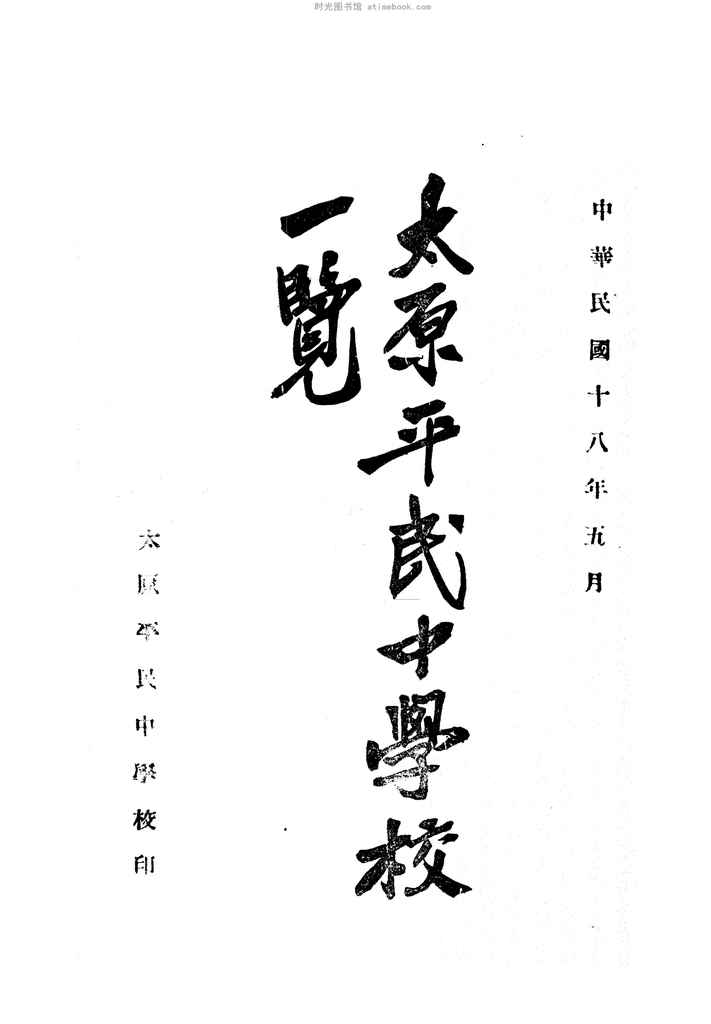 时光图书馆 atimebook.com
中華民國十八年五月
太原平民中學校
一覽
太原平民中學校印